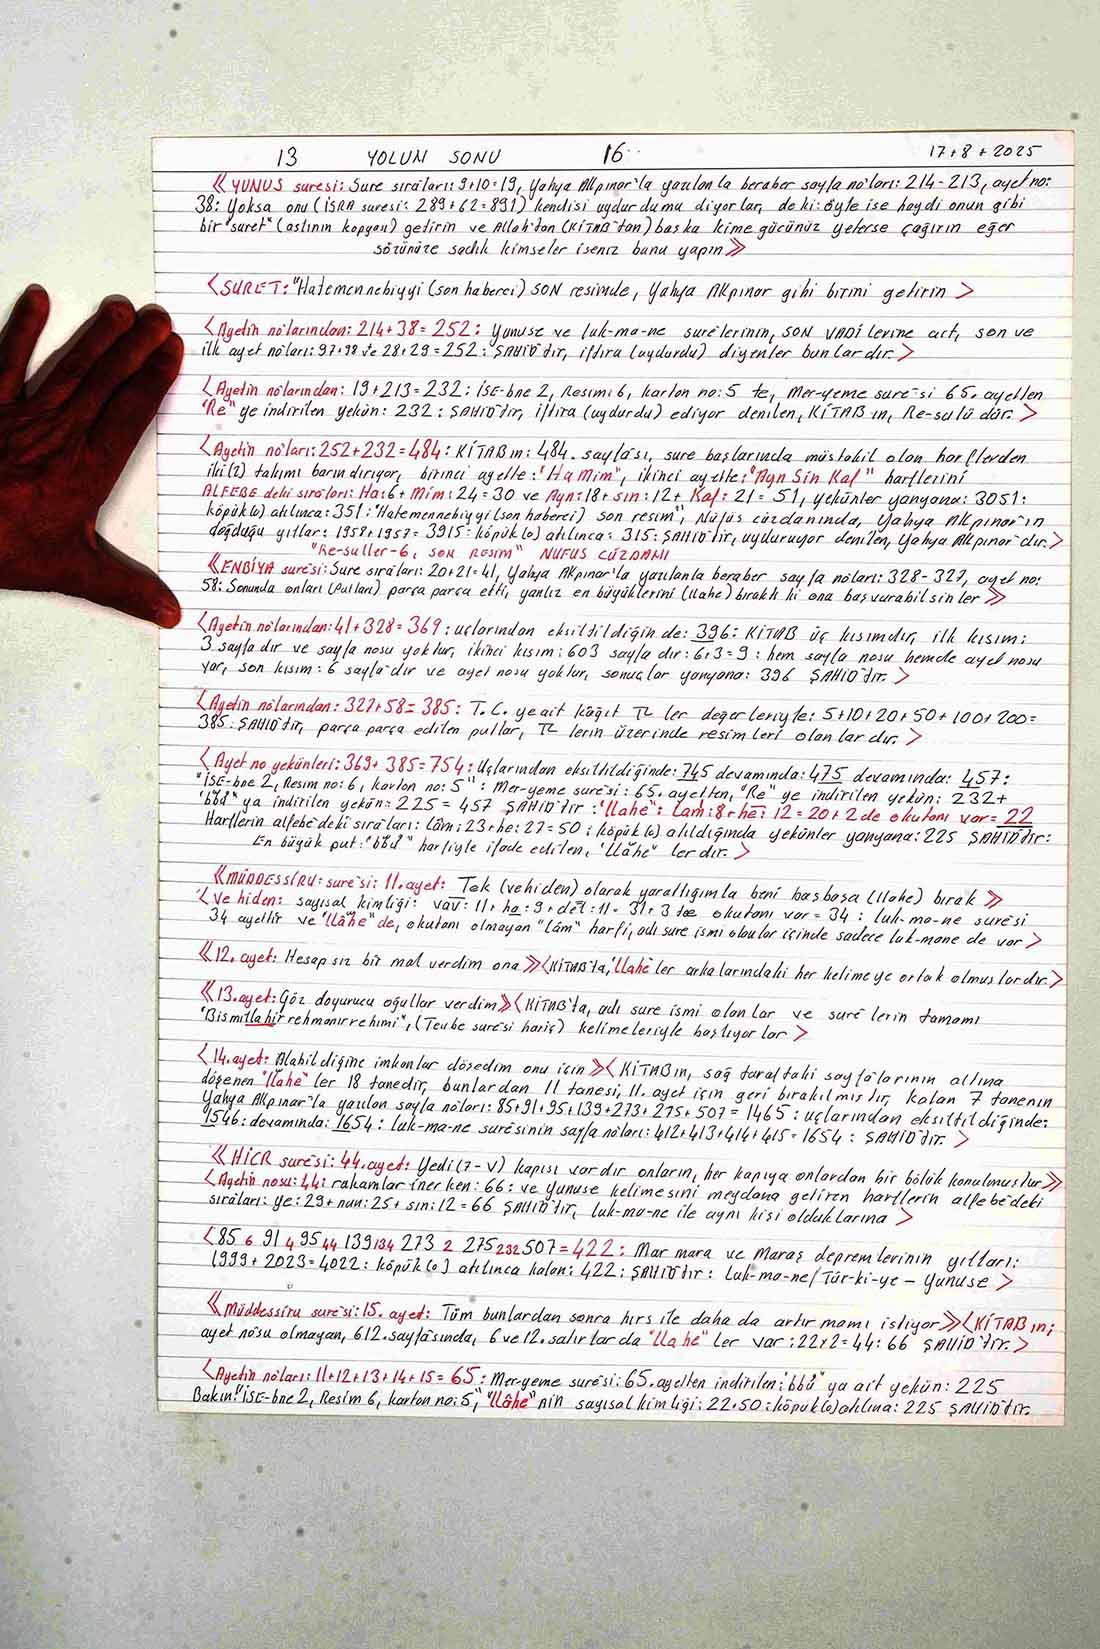 13 YOLUM SONU 16.. 17+8+2025
《YUNUS suresi: Sure sıraları: 9+10=19, Yahya Akpınar'la yazılanla beraber sayfa no'ları: 214-213, ayet no:
38: Yoksa onu (İSRA suresi: 289+62=891) kendisi uydurdumu diyorlar, de ki: öyle ise haydi onun gibi
bir "suret" (aslının kopyası) getirin ve Allah'tan (KİTAB'tan) başka kime gücünüz yeterse çağırın eğer
sözünüze sadık kimseler iseniz bunu yapın》
〈SURET: "Hatemennebiyyi (son haberci) SON resimde, Yahya Akpınar gibi birini getirin〉
〈Ayetin no'larından: 214+38=252: Yunuse ve luk-ma-ne surelerinin, SON VADİ lerine ait, son ve
ilk ayet no'ları: 97+98 ve 28+29=252: ŞAHİD'tir, iftira (uydurdu) diyenler bunlardır.〉
〈Ayetin no'larından: 19+213=232: İSE-bne 2, Resim 6, karton no: 5 te, Mer-yeme sure-si 65. ayetten
"Re" ye indirilen yekün: 232: ŞAHİD'tir, iftira (uydurdu) ediyor denilen, KİTAB'ın, Re-sulü dür.〉
〈Ayetin no'ları: 252+232=484: KİTAB'ın: 484. sayfası, sure başlarında müstakil olan harflerden
iki(2) takımı barındırıyor, birinci ayette: "Ha Mim", ikinci ayette: "Ayn Sin Kaf" harflerini
ALFEBE deki sıraları: Ha: 6+ Mim: 24=30 ve Ayn: 18+ sin: 12+ Kaf: 21=51, yekünler yanyana: 3051:
köpük(o) atılınca: 351: "Hatemennebiyyi (son haberci) son resim", Nüfüs cüzdanında, Yahya Akpınar'ın
doğduğu yıllar: 1958+1957=3915: köpük(o) atılınca: 315: ŞAHİD'tir, uyduruyor denilen, Yahya Akpınar'dır.〉
"Re-suller-6, SON RESİM" NUFUS CÜZDANI
《ENBİYA suresi: Sure sıraları: 20+21=41, Yahya Akpınar'la yazılanla beraber sayfa no'ları: 328-327, ayet no:
58: Sonunda onları (Putları) parça parça etti, yanlız en büyüklerini (ilahe) bıraktı ki ona başvurabilsinler》
〈Ayetin no'larından: 41+328=369: uçlarından eksiltildiğin de: 396: KİTAB üç kısımdır, ilk kısım:
3 sayfa dır ve sayfa nosu yoktur, ikinci kısım: 603 sayfa dır: 6+3=9: hem sayfa nosu hemde ayet nosu
var, son kısım: 6 sayfa dır ve ayet nosu yoktur, sonuçlar yanyana: 396 ŞAHİD'tir.〉
〈Ayetin no'larından: 327+58=385: T.C. ye ait kağıt TL ler değerleriyle: 5+10+20+50+100+200=
385: ŞAHİD'tir, parça parça edilen pullar, TL lerin üzerinde resimleri olanlardır.〉
〈Ayet no yekünleri: 369+385=754: Uçlarından eksiltildiğinde: 745 devamında: 475 devamında: 457:
"İSE-bne 2, Resim no: 6, karton no: 5": Mer-yeme suresi: 65. ayetten, "Re" ye indirilen yekün: 232+
"bbû" ya indirilen yekün: 225=457 ŞAHİD'tir: "ilahe": Lam: 8+he: 12=20+2 de okutanı var=22
Harflerin alfebe'deki sıraları: Lâm: 23+he: 27=50: köpük(o) atıldığında yekünler yanyana: 225 ŞAHİD'tir:
En büyük put: "bbû" harfiyle ifade edilen, "ilâhe" lerdir.〉
《MÜDDESSİRU: suresi: 11.ayet: Tek (vehiden) olarak yarattığımla beni başbaşa (ilahe) bırak》
〈vehiden: sayısal kimliği: vav: 11+ ha: 9+ del: 11= 31+3 te okutanı var=34: luk-ma-ne suresi
34 ayettir ve "ilâhe" de, okutanı olmayan "lâm" harfi, adı sure ismi olanlar içinde sadece luk-mane de var〉
〈12. ayet: Hesapsız bir mal verdim ona》〈KİTAB'ta, "ilahe" ler arkalarındaki her kelimeye ortak olmuşlardır.〉
《13. ayet: Göz doyurucu oğullar verdim》〈KİTAB'ta, adı sure ismi olanlar ve surelerin tamamı
"Bismillahirrehmanirrehimi", (Tevbe suresi hariç) kelimeleriyle başlıyorlar〉
〈14. ayet: Alabildiğine imkanlar döşedim onu için》〈KİTAB'ın, sağ taraftaki sayfalarının altına
döşenen "ilahe" ler 18 tanedir, bunlardan 11 tanesi, 11. ayet için geri bırakılmıştır, kalan 7 tanenin
Yahya Akpınar'la yazılan sayfa no'ları: 85+91+95+139+273+275+507=1465: uçlarından eksiltildiğinde:
1546: devamında: 1654: luk-ma-ne suresinin sayfa no'ları: 412+413+414+415=1654: ŞAHİD'tir.〉
《HİCR suresi: 44. ayet: Yedi (7-V) kapısı vardır onların, her kapıya onlardan bir bölük konulmuştur》
〈Ayetin nosu: 44: rakamlar inerken: 66: ve Yunuse kelimesini meydana getiren harflerin alfebe'deki
sıraları: ye: 29+nun: 25+ sin: 12=66 ŞAHİD'tir, luk-ma-ne ile aynı kişi olduklarına〉
〈85 6 91 4 95 44 139 134 273 2 275 232 507=422: Mar mara ve Maraş depremlerinin yılları:
1999+2023=4022: köpük(o) atılınca kalan: 422: ŞAHİD'tir: Luk-ma-ne/Tür-ki-ye - Yunuse〉
《Müddessiru suresi: 15. ayet: Tüm bunlardan sonra hırs ile daha da artırmamı istiyor》〈KİTAB'ın;
ayet nosu olmayan, 612. sayfasında, 6 ve 12. satırlarda "ilahe" ler var: 22x2=44: 66 ŞAHİD'tir.〉
〈Ayetin no'ları: 11+12+13+14+15=65: Mer-yeme suresi: 65. ayetten indirilen: "bbû" ya ait yekün: 225
Bakın: "İSE-bne 2, Resim 6, karton no: 5", "ilâhe" nin sayısal kimliği: 22+50: köpük(o) atılına: 225 ŞAHİD'tir.